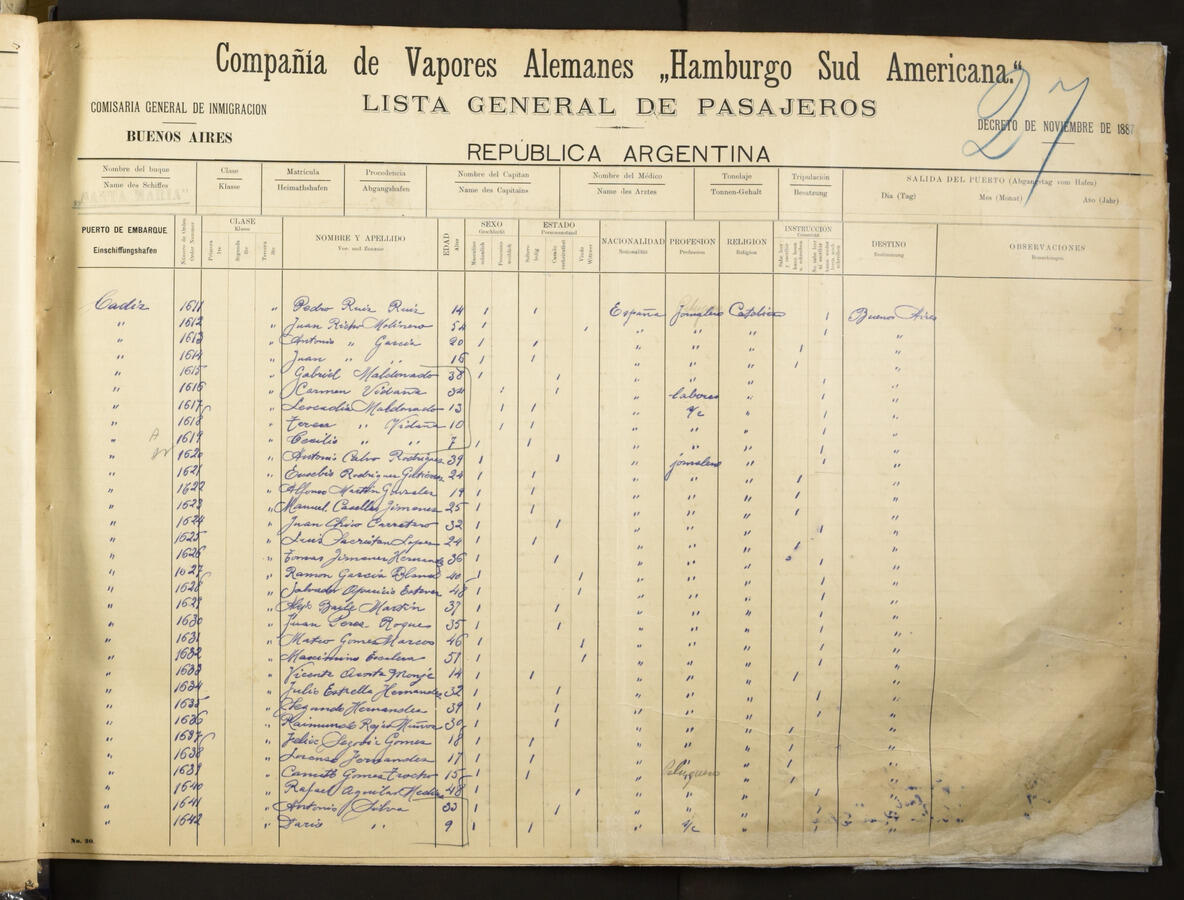 Compañía de Vapores Alemanes „Hamburgo Sud Americana.“
27
COMISARIA GENERAL DE INMIGRACION
BUENOS AIRES
LISTA GENERAL DE PASAJEROS
DECRETO DE NOVIEMBRE DE 188
REPÚBLICA ARGENTINA
Nombre del buque Clase Matrícula Procedencia Nombre del Capitan Nombre del Médico Tonelaje Tripulación SALIDA DEL PUERTO (Abgangstag vom Hafen)
Name des Schiffes Klasse Heimathshafen Abgangshafen Name des Capitains Name des Arztes Tonnen-Gehalt Besatzung Dia (Tag) Mes (Monat) Año (Jahr)
"SANTA MARIA"
PUERTO DE EMBARQUE Número de Orden CLASE NOMBRE Y APELLIDO EDAD SEXO ESTADO NACIONALIDAD PROFESION RELIGION INSTRUCCION DESTINO OBSERVACIONES
Einschiffungshafen Klasse Vor- und Zuname Alter Nationalität Profession Religion Bestimmung Bemerkungen
Cadiz 1611 " Pedro Ruiz Ruiz 14 1 1 España Jornalero Catolica 1 Buenos Aires
" 1612 " Juan Molinero 54 1 1 " " " 1 "
" 1613 " Antonio " Garcia 20 1 1 " " " 1 "
" 1614 " Juan " " 16 1 1 " " " 1 "
" 1615 " Gabriel Maldonado 38 1 1 " " " 1 "
" 1616 " Carmen Vidaña 34 1 1 " labores " 1 "
" 1617 " Leocadia Maldonado 13 1 1 " s/c " 1 "
" 1618 " Teresa " Vidaña 10 1 1 " " " 1 "
" 1619 " Cecilio " " 7 1 1 " " " 1 "
" 1620 " Antonio Calvo Rodriguez 39 1 1 " jornalero " 1 "
" 1621 " Eusebio Rodriguez Gutierrez 24 1 1 " " " 1 "
" 1622 " Alfonso Martin Gonzalez 19 1 1 " " " 1 "
" 1623 " Manuel Casellas Jimenez 25 1 1 " " " 1 "
" 1624 " Juan Chico Carretero 32 1 1 " " " 1 "
" 1625 " Luis Sacristan Lopez 24 1 1 " " " 1 "
" 1626 " Tomas Jimenez Hernandez 36 1 1 " " " 1 "
" 1627 " Ramon Garcia Blanco 40 1 1 " " " 1 "
" 1628 " Salvador Aparicio Estevez 48 1 1 " " " 1 "
" 1629 " Alejo Baile Martin 37 1 1 " " " 1 "
" 1630 " Juan Perez Roques 35 1 1 " " " 1 "
" 1631 " Mateo Gomez Marcos 46 1 1 " " " 1 "
" 1632 " Maximino Escalera 51 1 1 " " " 1 "
" 1633 " Vicente Acosta Monje 14 1 1 " " " 1 "
" 1634 " Julio Estrella Hernandez 32 1 1 " " " 1 "
" 1635 " Segundo Hernandez 39 1 1 " " " 1 "
" 1636 " Raimundo Rojo Muñoz 30 1 1 " " " 1 "
" 1637 " Felix Gomez 18 1 1 " " " 1 "
" 1638 " Lorenzo Fernandez 17 1 1 " " " 1 "
" 1639 " Camilo Gomez Trocho 15 1 1 " Peluquero " 1 "
" 1640 " Rafael Aguilar Medina 48 1 1 " " " 1 "
" 1641 " Antonio Silva 33 1 1 " " " 1 "
" 1642 " Dario " 9 1 1 " s/c " 1 "
No. 20.